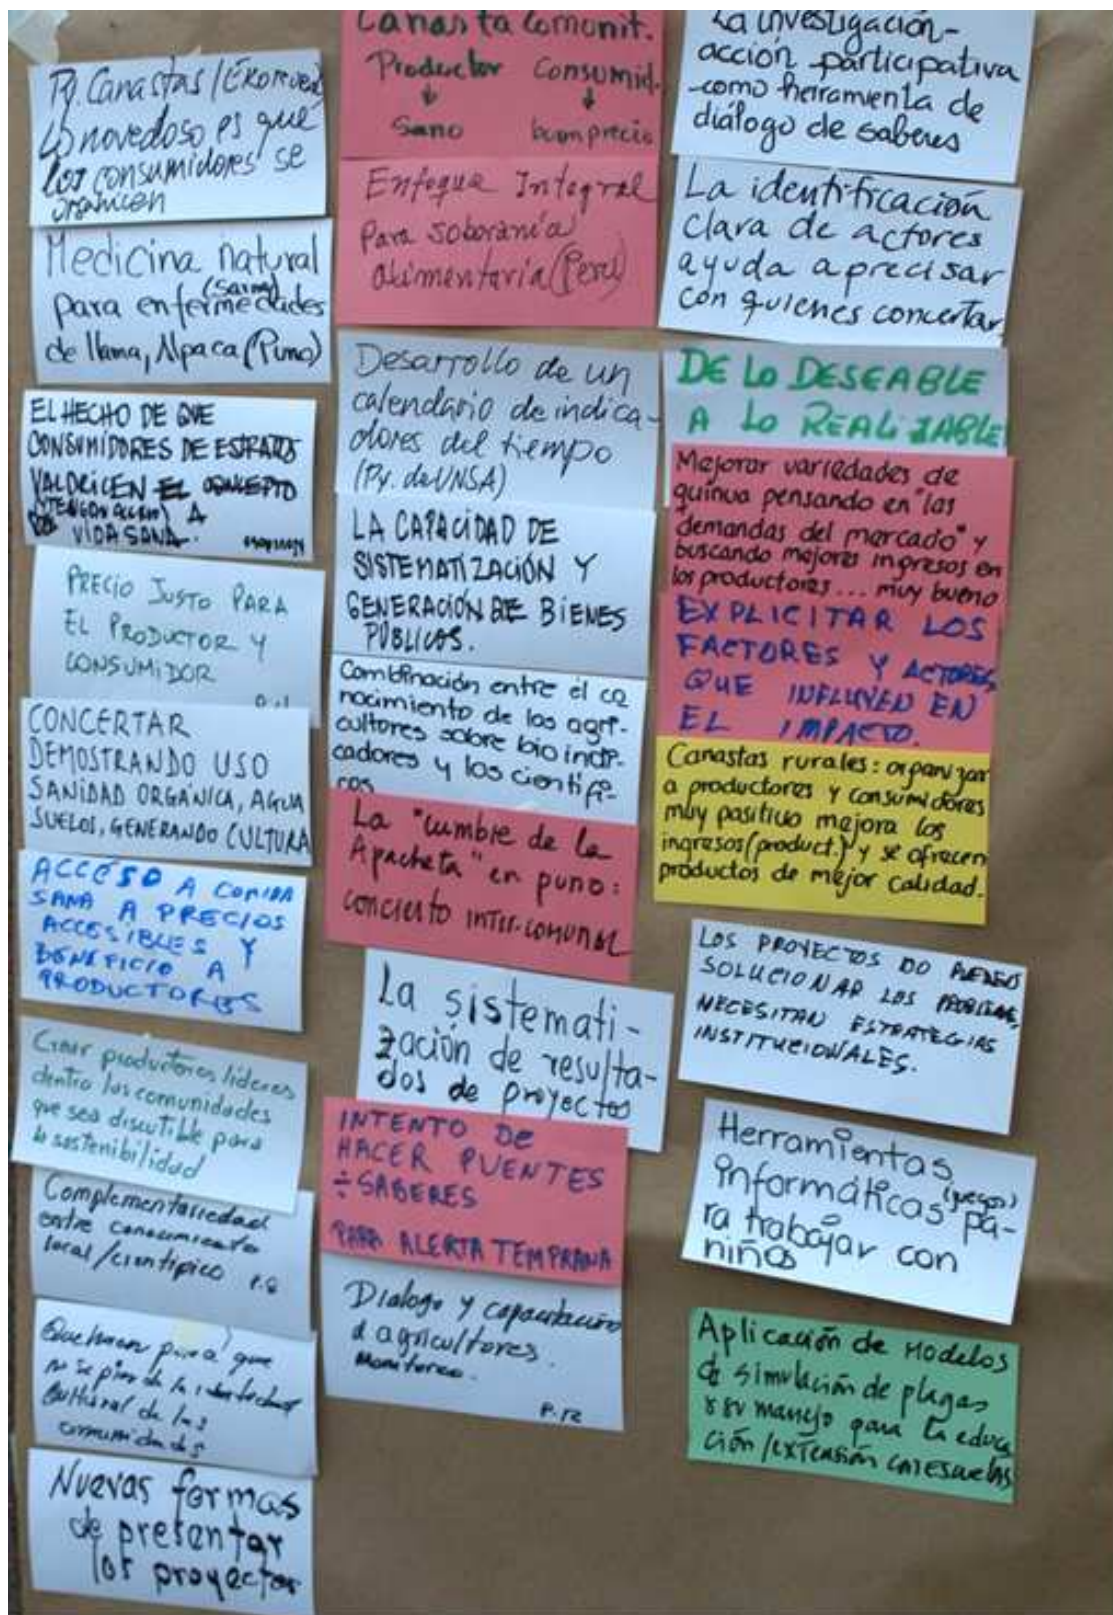 Py. Canastas / (Ekorural)
Lo novedoso es que
los consumidores se
organicen
Medicina natural
(Sarna)
para enfermedades
de llama, Alpaca (Puno)
EL HECHO DE QUE
CONSUMIDORES DE ESTRATOS
VALORICEN EL CONCEPTO
Y TENGAN ACCESO A
VIDA SANA.
PRECIO JUSTO PARA
EL PRODUCTOR Y
CONSUMIDOR
CONCERTAR
DEMOSTRANDO USO
SANIDAD ORGÁNICA, AGUA
SUELOS, GENERANDO CULTURA
ACCESO A COMIDA
SANA A PRECIOS
ACCESIBLES Y
BENEFICIO A
PRODUCTORES
Crear productores líderes
dentro las comunidades
que sea discutible para
la sostenibilidad
Complementariedad
entre conocimiento
local/científico P.8
que
no se pierda la identidad
cultural de las
comunidades
Nuevas formas
de presentar
los proyectos
Canasta Comunit.
Productor Consumid.
↓ ↓
Sano buen precio
Enfoque Integral
para soberanía
alimentaria (Perú)
Desarrollo de un
calendario de indica-
dores del tiempo
(Py. de UNSA)
LA CAPACIDAD DE
SISTEMATIZACIÓN Y
GENERACIÓN DE BIENES
PÚBLICOS.
Combinación entre el co
nocimiento de los agri-
cultores sobre bio indi-
cadores y los científi-
cos
La "cumbre de la
Apacheta" en puno:
concierto inter-comunal
La sistemati-
zación de resulta-
dos de proyectos
INTENTO DE
HACER PUENTES
÷ SABERES
PARA ALERTA TEMPRANA
Dialogo y capacitación
a agricultores.
Monitoreo.
P.12
La investigación-
acción participativa
como herramienta de
diálogo de saberes
La identificación
clara de actores
ayuda a precisar
con quienes concertar
DE LO DESEABLE
A LO REALIZABLE
Mejorar variedades de
quinua pensando en "las
demandas del mercado" y
buscando mejores ingresos en
los productores... muy bueno
EXPLICITAR LOS
FACTORES Y ACTORES
QUE INFLUYEN EN
EL IMPACTO.
Canastas rurales: organizar
a productores y consumidores
muy positivo mejora los
ingresos (product.) y se ofrecen
productos de mejor calidad.
LOS PROYECTOS NO PUEDEN
SOLUCIONAR LOS PROBLEMAS,
NECESITAN ESTRATEGIAS
INSTITUCIONALES.
Herramientas
informáticas (juegos) pa-
ra trabajar con
niños
Aplicación de Modelos
de simulación de plagas
y su manejo para la educa
ción/extensión en escuelas